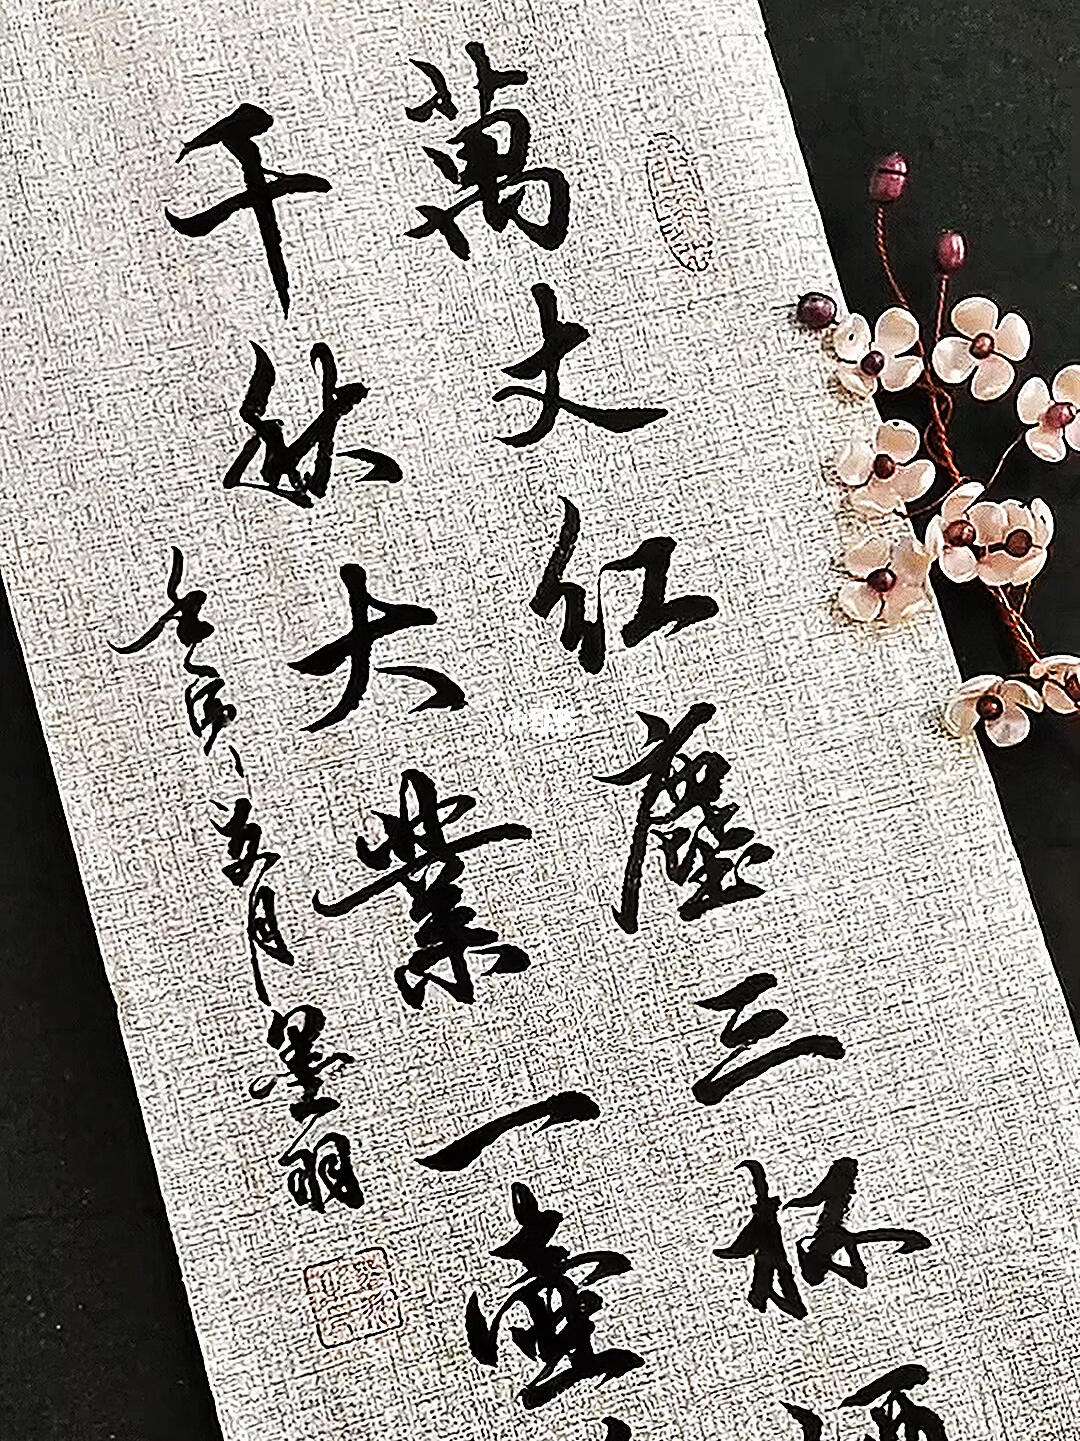 萬丈紅塵三杯酒
千秋大業一壺
壬寅五月墨